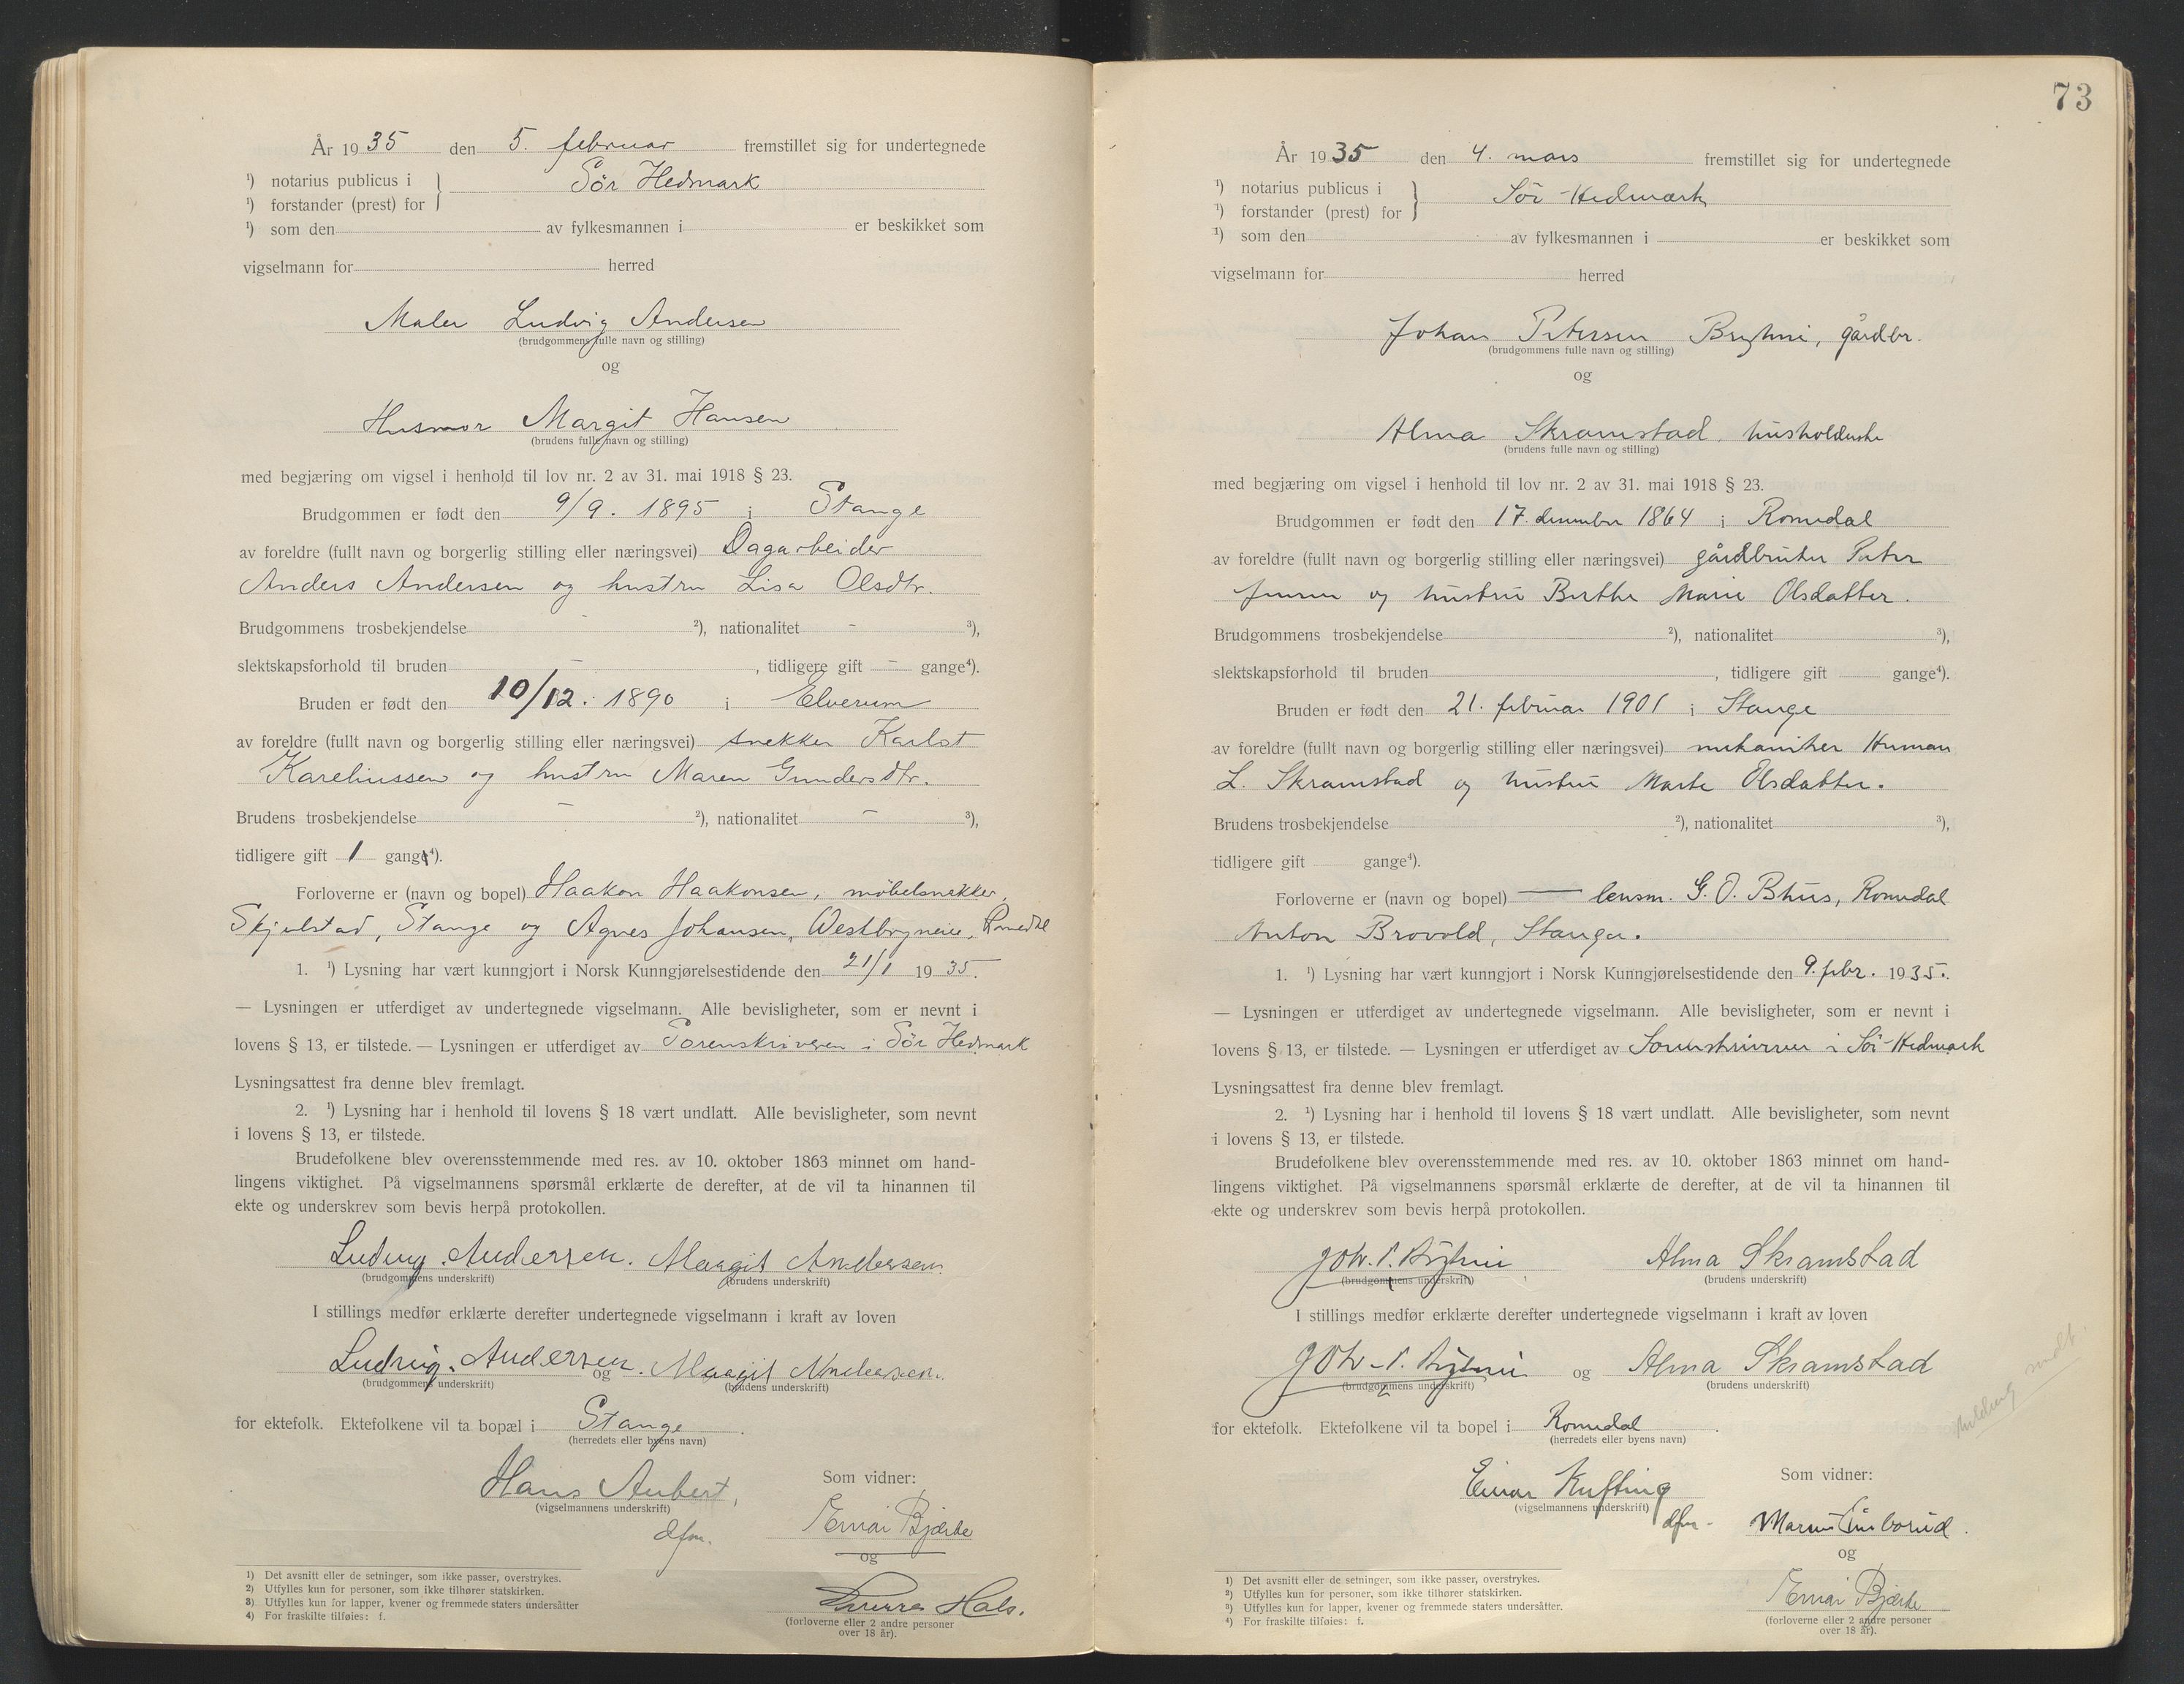 År 1935 den 5. februar fremstillet sig for undertegnede
¹) notarius publicus i } Sör Hedmark
¹) forstander (prest) for
¹) som den av fylkesmannen i er beskikket som
vigselmann for herred
Maler Ludvig Andersen
(brudgommens fulle navn og stilling)
og
Husmor Margit Hansen
(brudens fulle navn og stilling)
med begjæring om vigsel i henhold til lov nr. 2 av 31. mai 1918 § 23.
Brudgommen er født den 9/9. 1895 i Stange
av foreldre (fullt navn og borgerlig stilling eller næringsvei) Dagarbeider
Anders Andersen og hustru Lisa Olsdtr.
Brudgommens trosbekjendelse - ²), nationalitet - ³),
slektskapsforhold til bruden - , tidligere gift - gange⁴).
Bruden er født den 10/12. 1890 i Elverum
av foreldre (fullt navn og borgerlig stilling eller næringsvei) snekker Karlot
Kareliussen og hustru Maren Gundersdtr.
Brudens trosbekjendelse - ²), nationalitet - ³),
tidligere gift 1 gang⁴).
Forloverne er (navn og bopel) Haakon Haakonsen, möbelsnekker,
Skjelstad, Stange og Agnes Johansen, Westbygneie, Romedal
1. ¹) Lysning har vært kunngjort i Norsk Kunngjørelsestidende den 21/1 1935.
— Lysningen er utferdiget av undertegnede vigselmann. Alle bevisligheter, som er nevnt i
lovens § 13, er tilstede. — Lysningen er utferdiget av Sorenskriveren i Sör Hedmark
Lysningsattest fra denne blev fremlagt.
2. ¹) Lysning har i henhold til lovens § 18 vært undlatt. Alle bevisligheter, som nevnt
i lovens § 13, er tilstede.
Brudefolkene blev overensstemmende med res. av 10. oktober 1863 minnet om hand-
lingens viktighet. På vigselmannens spørsmål erklærte de derefter, at de vil ta hinannen til
ekte og underskrev som bevis herpå protokollen.
Ludvig Andersen. Margit Andersen.
(brudgommens underskrift) (brudens underskrift)
I stillings medfør erklærte derefter undertegnede vigselmann i kraft av loven
Ludvig Andersen og Margit Andersen.
(brudgommens underskrift) (brudens underskrift)
for ektefolk. Ektefolkene vil ta bopæl i Stange.
(herredets eller byens navn)
Hans Aubert,
(vigselmannens underskrift)
dfm.
Som vidner:
Einar Bjærke
og
Hals.
(forloverne eller 2 andre personer
over 18 år).
1) Det avsnitt eller de setninger, som ikke passer, overstrykes.
2) Utfylles kun for personer, som ikke tilhører statskirken.
3) Utfylles kun for lapper, kvener og fremmede staters undersåtter
4) For fraskilte tilføies: f.
73
År 1935 den 4. mars fremstillet sig for undertegnede
¹) notarius publicus i } Sör-Hedmark
¹) forstander (prest) for
¹) som den av fylkesmannen i er beskikket som
vigselmann for herred
Johan Petersen Bryhni, gårdbr.
(brudgommens fulle navn og stilling)
og
Alma Skramstad, husholderske
(brudens fulle navn og stilling)
med begjæring om vigsel i henhold til lov nr. 2 av 31. mai 1918 § 23.
Brudgommen er født den 17. desember 1864 i Romedal
av foreldre (fullt navn og borgerlig stilling eller næringsvei) gårdbruker Peter
Jensen og hustru Berthe Marie Olsdatter.
Brudgommens trosbekjendelse ²), nationalitet ³),
slektskapsforhold til bruden , tidligere gift gange⁴).
Bruden er født den 21. februar 1901 i Stange
av foreldre (fullt navn og borgerlig stilling eller næringsvei) mekaniker Herman
L. Skramstad og hustru Marte Olsdatter.
Brudens trosbekjendelse ²), nationalitet ³),
tidligere gift gange⁴).
Forloverne er (navn og bopel) — lensm. G. O. Bhus, Romedal
Anton Brovold, Stange.
1. ¹) Lysning har vært kunngjort i Norsk Kunngjørelsestidende den 9. febr. 1935.
— Lysningen er utferdiget av undertegnede vigselmann. Alle bevisligheter, som er nevnt i
lovens § 13, er tilstede. — Lysningen er utferdiget av Sorenskriveren i Sör-Hedmark
Lysningsattest fra denne blev fremlagt.
2. ¹) Lysning har i henhold til lovens § 18 vært undlatt. Alle bevisligheter, som nevnt
i lovens § 13, er tilstede.
Brudefolkene blev overensstemmende med res. av 10. oktober 1863 minnet om hand-
lingens viktighet. På vigselmannens spørsmål erklærte de derefter, at de vil ta hinannen til
ekte og underskrev som bevis herpå protokollen.
Joh. P. Bryhni Alma Skramstad
(brudgommens underskrift) (brudens underskrift)
I stillings medfør erklærte derefter undertegnede vigselmann i kraft av loven
Joh. P. Bryhni og Alma Skramstad
(brudgommens underskrift) (brudens underskrift)
Melding sendt.
for ektefolk. Ektefolkene vil ta bopel i Romedal.
(herredets eller byens navn)
Einar Kufting
(vigselmannens underskrift)
dfm.
Som vidner:
og
Einar Bjærke
(forloverne eller 2 andre personer
over 18 år).
1) Det avsnitt eller de setninger, som ikke passer, overstrykes.
2) Utfylles kun for personer, som ikke tilhører statskirken.
3) Utfylles kun for lapper, kvener og fremmede staters undersåtter.
4) For fraskilte tilføies: f.